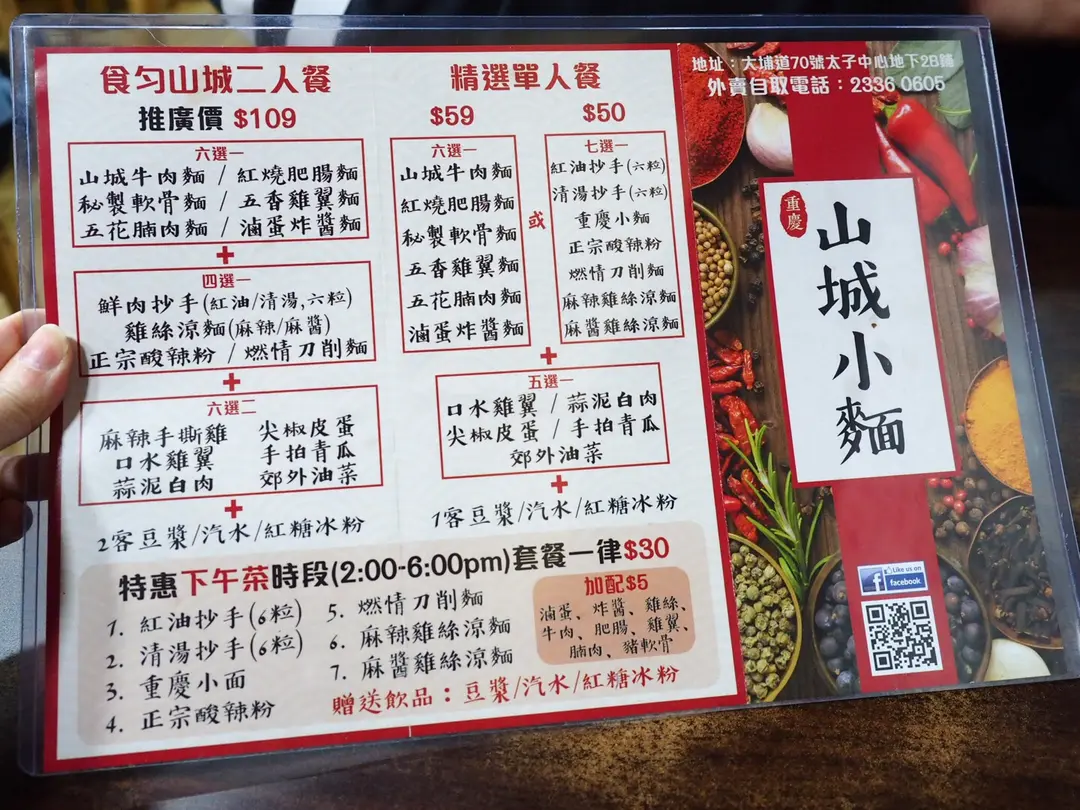 食勻山城二人餐
推廣價 $109
六選一
山城牛肉麵 / 紅燒肥腸麵
秘製軟骨麵 / 五香雞翼麵
五花腩肉麵 / 滷蛋炸醬麵
+
四選一
鮮肉抄手(紅油/清湯,六粒)
雞絲涼麵(麻辣/麻醬)
正宗酸辣粉 / 燃情刀削麵
+
六選二
麻辣手撕雞 尖椒皮蛋
口水雞翼 手拍青瓜
蒜泥白肉 郊外油菜
+
2客豆漿/汽水/紅糖冰粉
精選單人餐
$59
六選一
山城牛肉麵
紅燒肥腸麵
秘製軟骨麵
五香雞翼麵
五花腩肉麵
滷蛋炸醬麵
或
$50
七選一
紅油抄手(六粒)
清湯抄手(六粒)
重慶小麵
正宗酸辣粉
燃情刀削麵
麻辣雞絲涼麵
麻醬雞絲涼麵
+
五選一
口水雞翼 / 蒜泥白肉
尖椒皮蛋 / 手拍青瓜
郊外油菜
+
1客豆漿/汽水/紅糖冰粉
特惠下午茶時段(2:00-6:00pm)套餐一律$30
1. 紅油抄手(6粒)
2. 清湯抄手(6粒)
3. 重慶小面
4. 正宗酸辣粉
5. 燃情刀削麵
6. 麻辣雞絲涼麵
7. 麻醬雞絲涼麵
加配$5
滷蛋、炸醬、雞絲、
牛肉、肥腸、雞翼、
腩肉、豬軟骨
贈送飲品：豆漿/汽水/紅糖冰粉
地址：大埔道70號太子中心地下2B舖
外賣自取電話：2336 0605
重慶
山城小麵
f Like us on
facebook